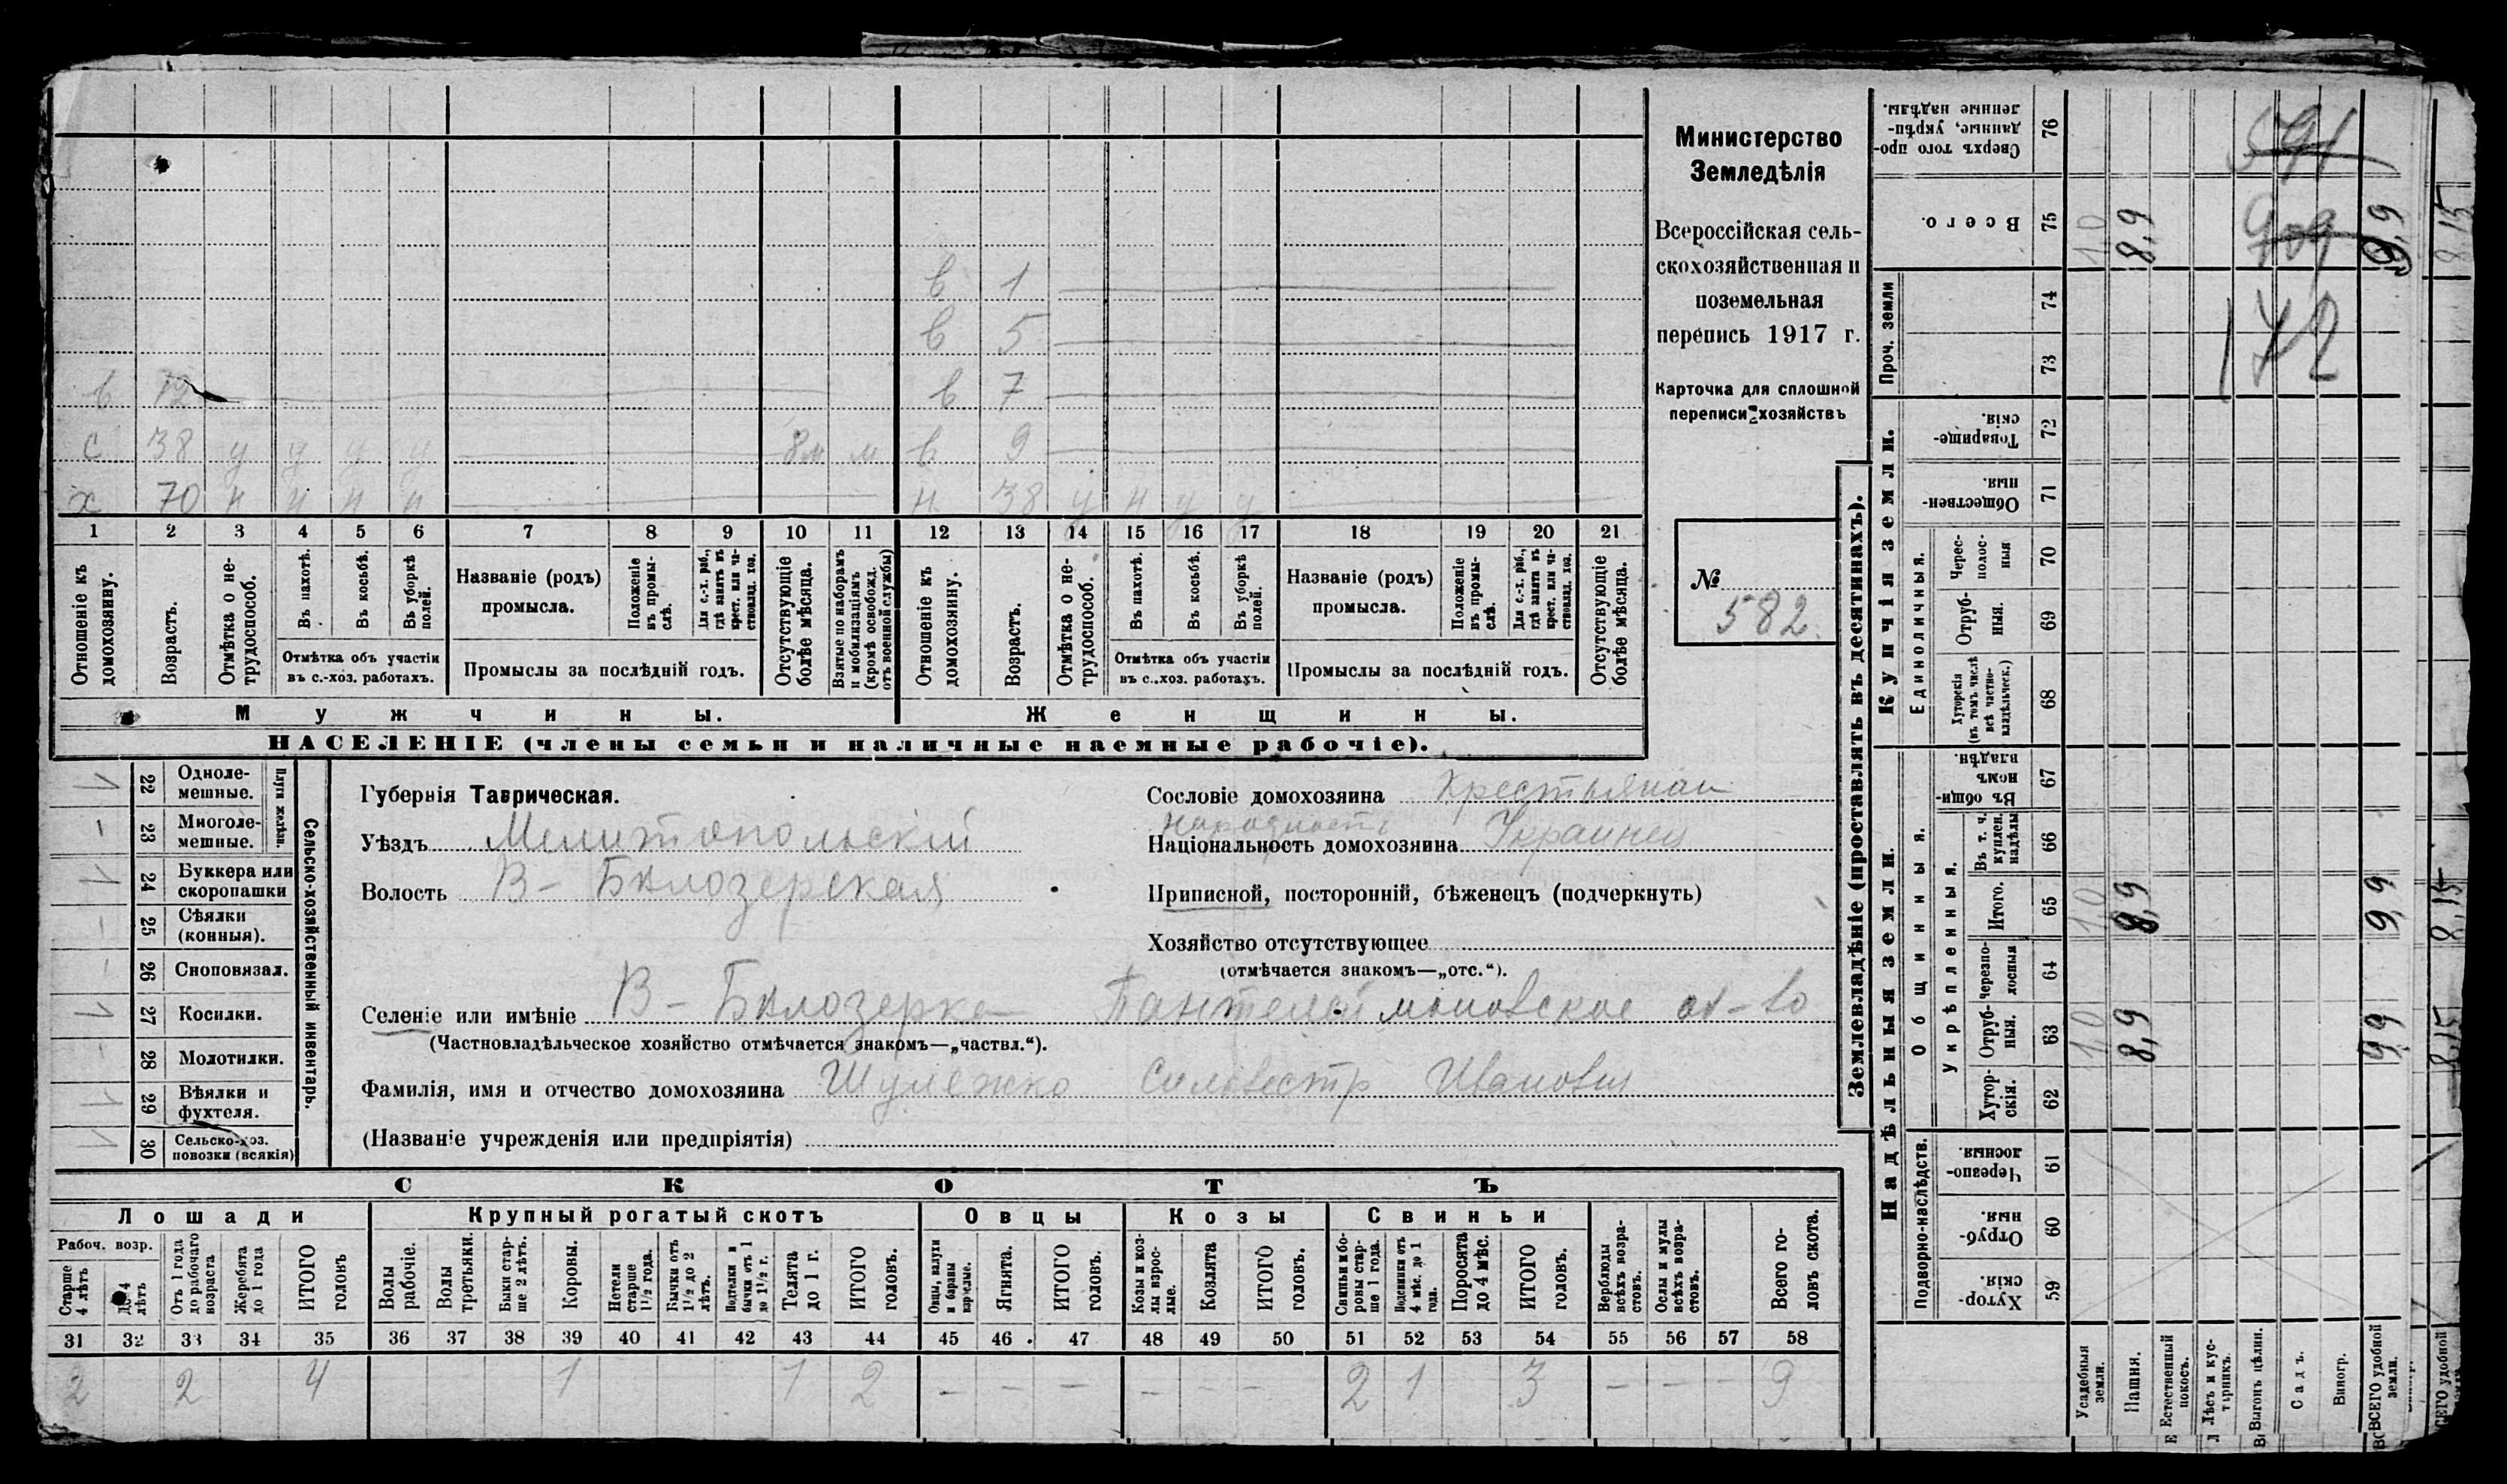 Министерство
Земледѣлія
Всероссійская сель-
скохозяйственная и
поземельная
перепись 1917 г.
Карточка для сплошной
переписи хозяйствъ
№
582
в 1
в 5
в 12 в 7
с 38 у у у у 8м м в 9
х 70 н н н н н 38 у н у у
1 2 3 4 5 6 7 8 9 10 11 12 13 14 15 16 17 18 19 20 21
Отношеніе къ домохозяину.
Возрастъ.
Отмѣтка о не-трудоспособ.
Въ пахотѣ.
Въ косьбѣ.
Въ уборкѣ полей.
Отмѣтка объ участіи
въ с.-хоз. работахъ.
Названіе (родъ)
промысла.
Положеніе въ промы-слѣ.
Для с.-х. раб., гдѣ занятъ въ крест. или ча-стновлад. хоз.
Промыслы за послѣдній годъ.
Отсутствующіе болѣе мѣсяца.
Взятые по наборамъ и мобилизаціямъ (кромѣ освобожд. отъ военной службы)
Отношеніе къ домохозяину.
Возрастъ.
Отмѣтка о не-трудоспособ.
Въ пахотѣ.
Въ косьбѣ.
Въ уборкѣ полей.
Отмѣтка объ участіи
въ с..хоз. работахъ.
Названіе (родъ)
промысла.
Положеніе въ промы-слѣ.
Для с.-х. раб., гдѣ занята въ крест. или ча-стновлад. хоз.
Промыслы за послѣдній годъ.
Отсутствующіе болѣе мѣсяца.
Мужчины.
Женщины.
НАСЕЛЕНІЕ (члены семьи и наличные наемные рабочіе).
Сельско-хозяйственный инвентарь.
Плуги желѣзн.
22 Одноле-мешные. 1
23 Многоле-мешные. –
24 Буккера или скоропашки 1
25 Сѣялки (конныя). –
26 Сноповязал. –
27 Косилки. 1
28 Молотилки. –
29 Вѣялки и фухтеля. 1
30 Сельско-хоз. повозки (всякія) 1
Губернія Таврическая.
Уѣздъ Мелитопольскій
Волость В- Бѣлозерская
Сословіе домохозяина Крестьянин
Народность
Національность домохозяина Украинец
Приписной, посторонній, бѣженецъ (подчеркнуть)
Хозяйство отсутствующее
(отмѣчается знакомъ—„отс.“).
Селеніе или имѣніе В- Бѣлозерка Пантелеймоновское об-во
(Частновладѣльческое хозяйство отмѣчается знакомъ—„частвл.“).
Фамилія, имя и отчество домохозяина Шулежко Сильвестр Иванович
(Названіе учрежденія или предпріятія)
СКОТЪ
Лошади
Крупный рогатый скотъ
Овцы
Козы
Свиньи
Рабоч. возр.
Старше 4 лѣтъ
До 4 лѣтъ
Отъ 1 года до рабочаго возраста
Жеребята до 1 года
ИТОГО головъ
Волы рабочіе.
Волы третьяки.
Быки стар-ше 2 лѣтъ.
Коровы.
Нетели старше 1½ года.
Бычки отъ 1½ до 2 лѣтъ.
Подтелки и бычки отъ 1 до 1½ г.
Телята до 1 г.
ИТОГО головъ.
Овцы, валухи и бараны взрослые.
Ягнята.
ИТОГО головъ.
Козы и коз-лы взрос-лые.
Козлята
ИТОГО головъ.
Свиньи и бо-ровы стар-ше 1 года.
Подсвинки отъ 4 мѣс. до 1 года.
Поросята до 4 мѣс.
ИТОГО головъ.
Верблюды всѣхъ возра-стовъ.
Ослы и мулы всѣхъ возра-стовъ.
Всего го-ловъ скота.
31 32 33 34 35 36 37 38 39 40 41 42 43 44 45 46 47 48 49 50 51 52 53 54 55 56 57 58
2 2 4 1 1 2 – – – – – – 2 1 3 – – – 9
Землевладѣніе (проставлять въ десятинахъ).
Купчія земли.
Надѣльныя земли.
Проч. земли
Единоличныя.
Общинныя.
Укрѣпленныя.
Подворно-наслѣдств.
76 Сверхъ того про-данные, укрѣп-ленные надѣлы.
75 Всего. 1,0 8,9 9,9 8,15
74
73
72 Товарище-скія
71 Обществен-ныя.
70 Черес-полос-ныя
69 Отруб-ныя.
68 Хуторскія (въ томъ числѣ всѣ частно-владѣльческ.)
67 Въ общи-номъ владѣн.
66 Въ т. ч. куплен. надѣлы
65 Итого. 1,0 8,9 9,9 8,15
64 Черезпо-лосныя
63 Отруб-ныя. 1,0 8,9 9,9 8,15
62 Хутор-скія.
61 Черезпо-лосныя.
60 Отруб-ныя.
59 Хутор-скія.
Усадебныя земли.
Пашня.
Естественный покосъ.
Лѣсъ и кус-тарникъ.
Выгонъ цѣлин.
Садъ.
Виногр.
ВСЕГО удобной земли.
591
909
172